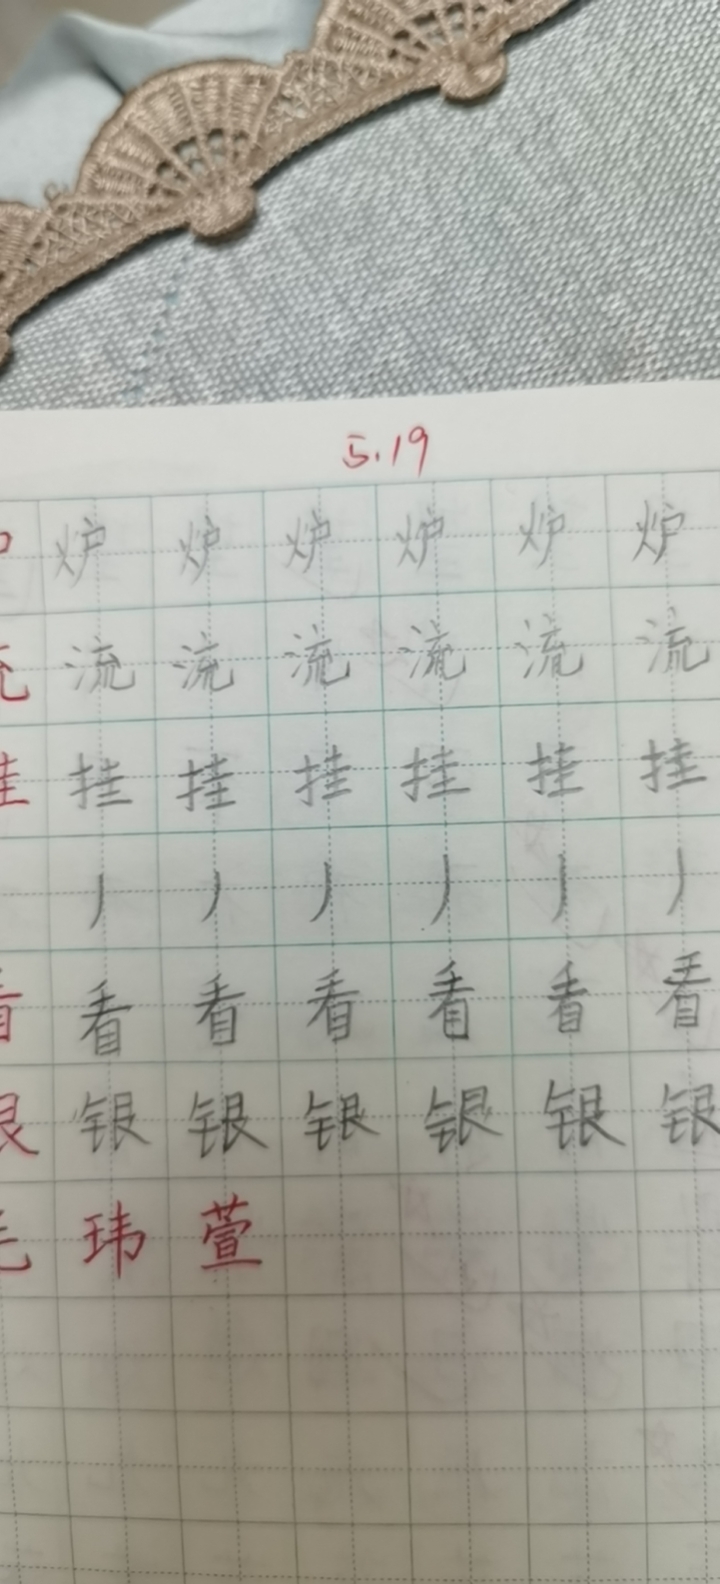 5.19
炉 炉 炉 炉 炉 炉
流 流 流 流 流 流
挂 挂 挂 挂 挂 挂
丿 丿 丿 丿 丿 丿
看 看 看 看 看 看
银 银 银 银 银 银
玮 萱